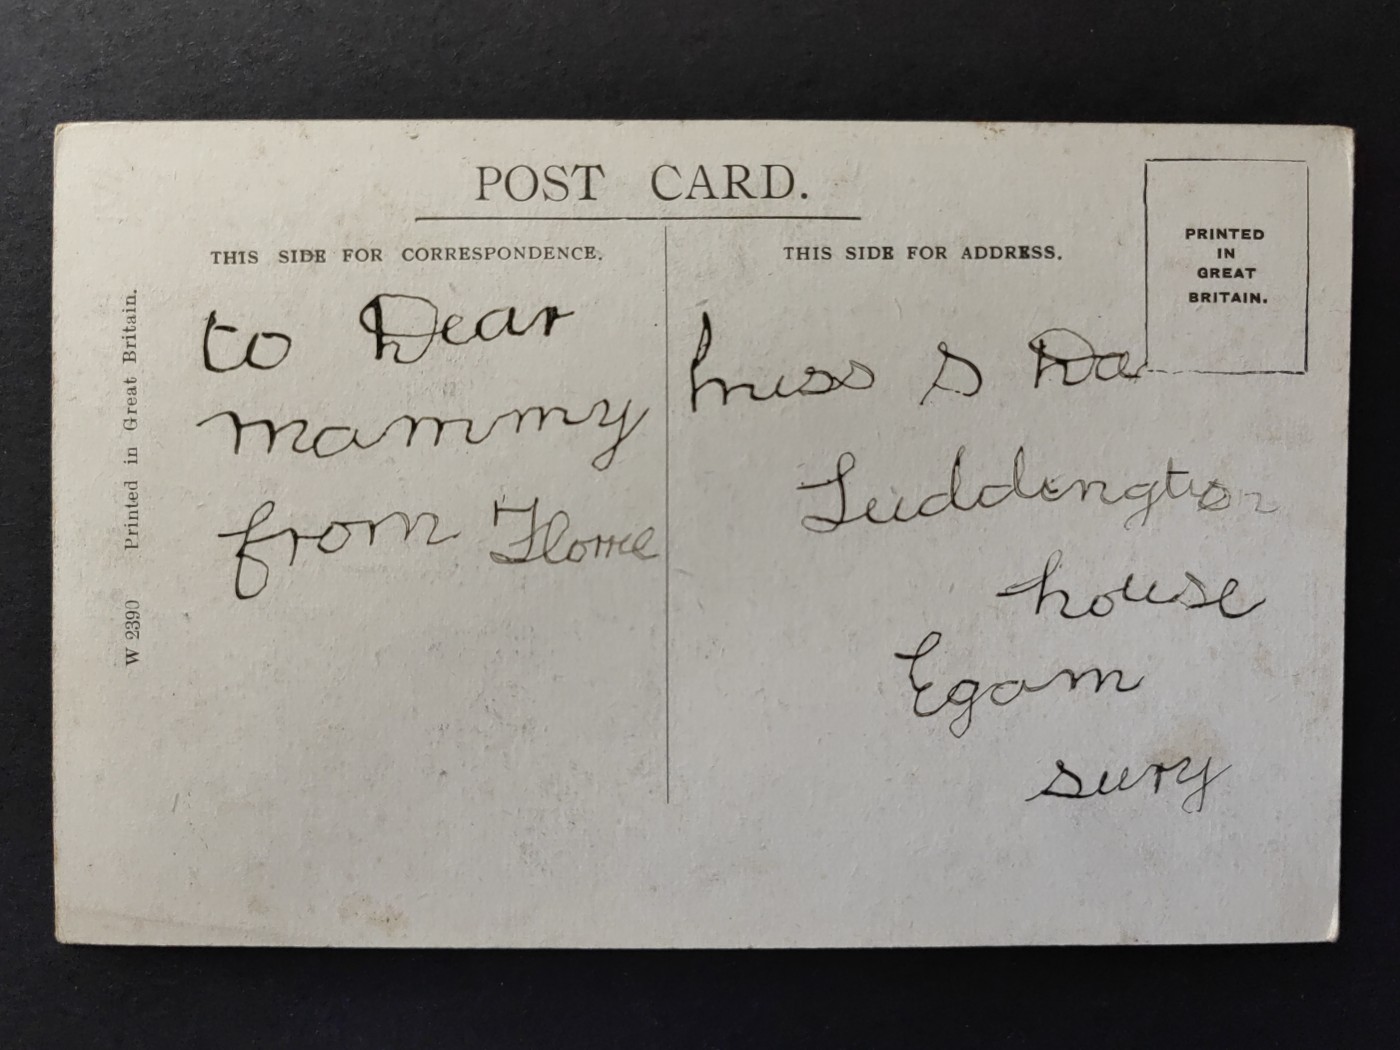 POST CARD.
THIS SIDE FOR CORRESPONDENCE.
to Dear
mammy
from Florrie
THIS SIDE FOR ADDRESS.
PRINTED
IN
GREAT
BRITAIN.
miss S Da
Luddington
house
Egam
sury
W 2390 Printed in Great Britain.